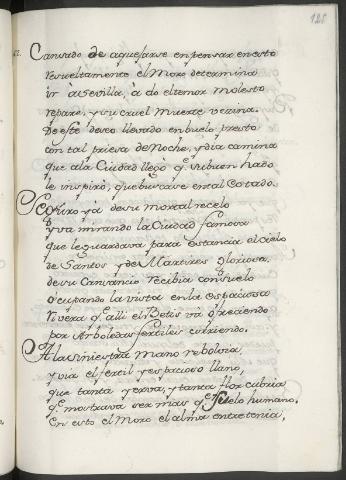 128
Cansado de aquejarse en pensar en esto
resueltamente el Moro determina
ir a Sevilla, à do el temor molesto
repare, y su cruel muerte vezina.
De este deseo llevado en buelo presto
con tal priesa de Noche, y dia camina
que a la Ciudad llegò q̃ su buen hado
le inspirò, que buscase en tal Estado.
Seguro yà de su mortal recelo
yva mirando la Ciudad famosa
que le guardava para estancia el cielo
de Santos y de Martires gloriosa.
de su Cansancio recibia consuelo
ocupando la vista en la espaciosa
rivera q̃ alli el Betis và
por Arboledas fertiles corriendo.
A la siniestra mano rebolvia
y via el fertil y espacioso llano,
que tanta yerva, y tanta flor cubria
q̃ mostrava ser mas q̃ suelo humano.
en esto el Moro el alma entretenia,